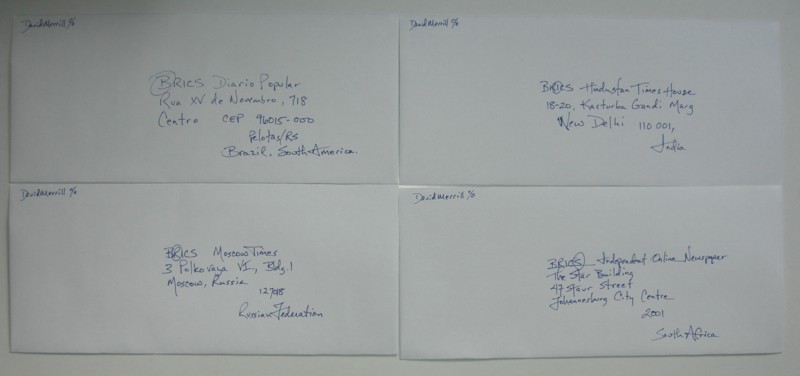 David Merrill c/o
BRICS Diario Popular
Rua XV de Novembro, 718
Centro CEP 96015-000
Pelotas/RS
Brazil, South America.
David Merrill c/o
BRICS Hindustan Times House
18-20, Kasturba Gandi Marg
New Delhi 110 001,
India
David Merrill c/o
BRICS Moscow Times
3 Polkovaya Vl, Bldg. 1
Moscow, Russia
127018
Russian Federation
David Merrill c/o
BRICS Independent Online Newspaper
The Star Building
47 Staur Street
Johannesburg City Centre
2001
South Africa